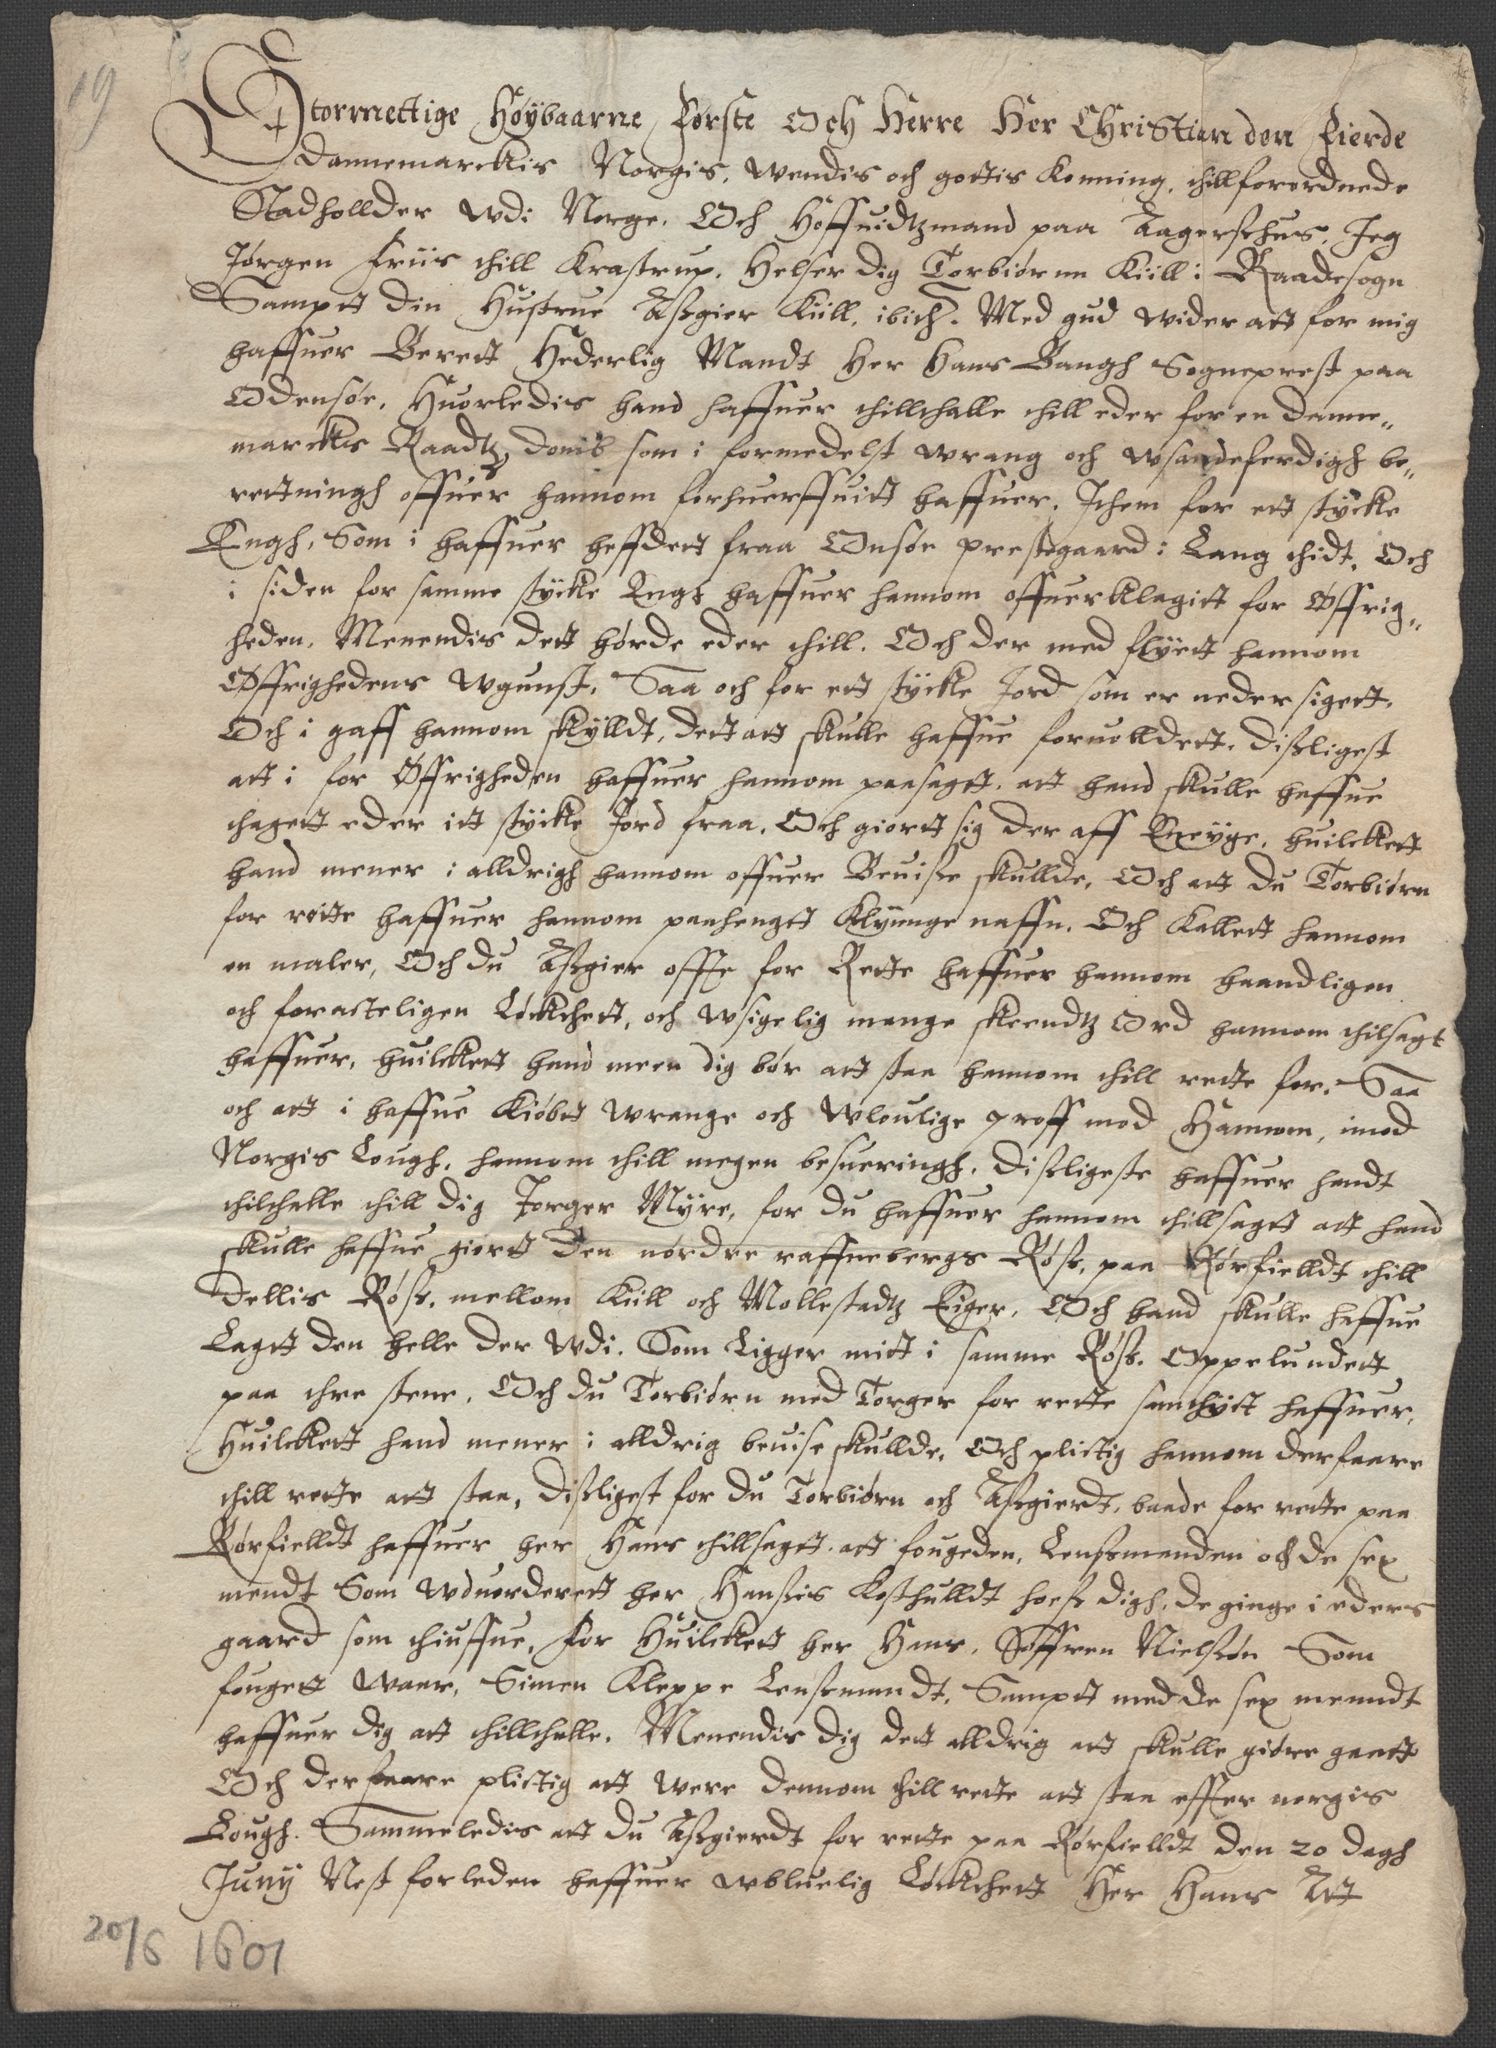 19
Stormettige Høybaarne Første Och Herre Her Christian den Fierde
Dannemarckis Norgis, Wendis och gottis Konning, thillforordnede
Stadhollder Wdi Norge. Och Høffuidtzmand paa Aagershus, Jeg
Jørgen Friis thill Krastrup. Helser dig Torbiørnn Kiill i Raadesogn
Sampt din Hustrue Assgier Kiill, ibid. Med gud wider att for mig
haffuer Berett Hederlig Mandt Her Hans Bangh Sogneprest paa
Odensøe, Huorledis hand haffuer thillthalle thill eder for en danne„
marckis Raadtz domb som i formedelst wrang och wsandeferdigh be„
rettningh offuer hannom forhuerffuitt haffuer. Ithem for ett stycke
Engh, Som i haffuer heffdett fraa Onsøe prestegaard i Lang thidt, Och
i siden for samme stycke Engh haffuer hannom offuerklagitt for Øffrig„
heden, Menendis dett hørde eder thill. Och der med flyett hannom
Øffrighedens Wgunst, Saa och for ett stycke Jord som er neder sigett,
Och i gaff hannom skylldt, dett att skulle haffue foruolldett. disligest
att i for Øffrigheden haffuer hannom paasagtt. att hand skulle haffue
thagett eder itt stycke Jord fraa, Och giortt sig der aff Eneyge, huilckett
hand mener i alldrigh hannom offuer Beuisse skullde, Och att du Torbiørn
for rette haffuer hannom paahengtt Klyenge naffn. Och Kallett hannom
en maler, Och du Assgier offte for Rette haffuer hannom haandligen
och foracteligen Løckthett, och wsigelig mange skendtz Ord hannom thilsagt
haffuer, huilckett hand meen dig bør att staa hannom thill rette for. Saa
och att i haffue Kiøbt wrange och Wloulige proff mod Hannom, imod
Norgis Lough, hannom thill megen besueringh. disligeste haffuer handt
thilthalle thill dig Torger Myre, for du haffuer hannom thillsagtt att hand
skulle haffue giort Den nørdre raffnebergs Røss, paa Rørfielldt thill
dellis Røss, mellom Kiill och Mollestadtz Eiger, Och hand skulle haffue
Lagtt den helle der Wdi. Som Ligger mitt i samme Røss. Oppelundett
paa thre stene, Och du Torbiørn med Torger for rette samthyct haffuer,
Huilckett hand mener i alldrig beuise skullde, Och plictig hannom derfaare
thill rette att staa, disligest for du Torbiørn och Assgierdt, baade for rette paa
Rørfielldt haffuer her Hans thillsagtt. att fougeden, Lensmanden och de sex
mendt Som Wduorderett her Hansis Kosthulldt hoess digh. de ginge i eders
gaard som thiuffue, for Huilckett her Hans, Søffren Nielssøn Som
fougett Waar, Simen Kleppe Lensmandt, Sampt med de sex menndt
haffuer dig att thillthalle. Menendis dig dett alldrig att skulle giøre gaatt
Och derfaare plictig att were dennom thill rette att staa effter norgis
Lough. Sammeledis att du Assgierdt for rette paa Rørfielldt den 20 dagh
Juny Nest forleden haffuer wbluelig Løckthett Her Hans Att
20/6 1601